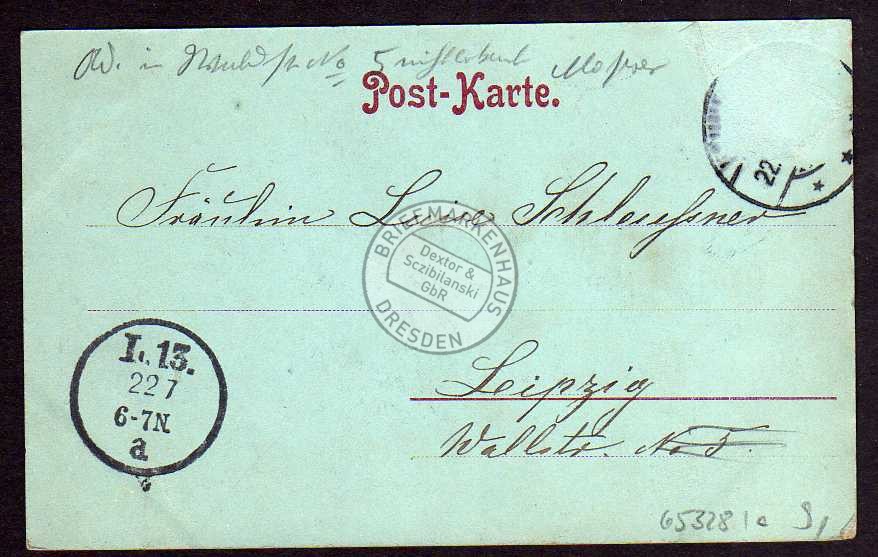 in Waldstr No 5
Post-Karte.
22
Fräulein Luise Schleussner
BRIEFMARKENHAUS
Dextor &
Sczibilanski
GbR
DRESDEN
L. 13.
22 7
6-7N.
a
Leipzig
Wallstr. No 5.
65328